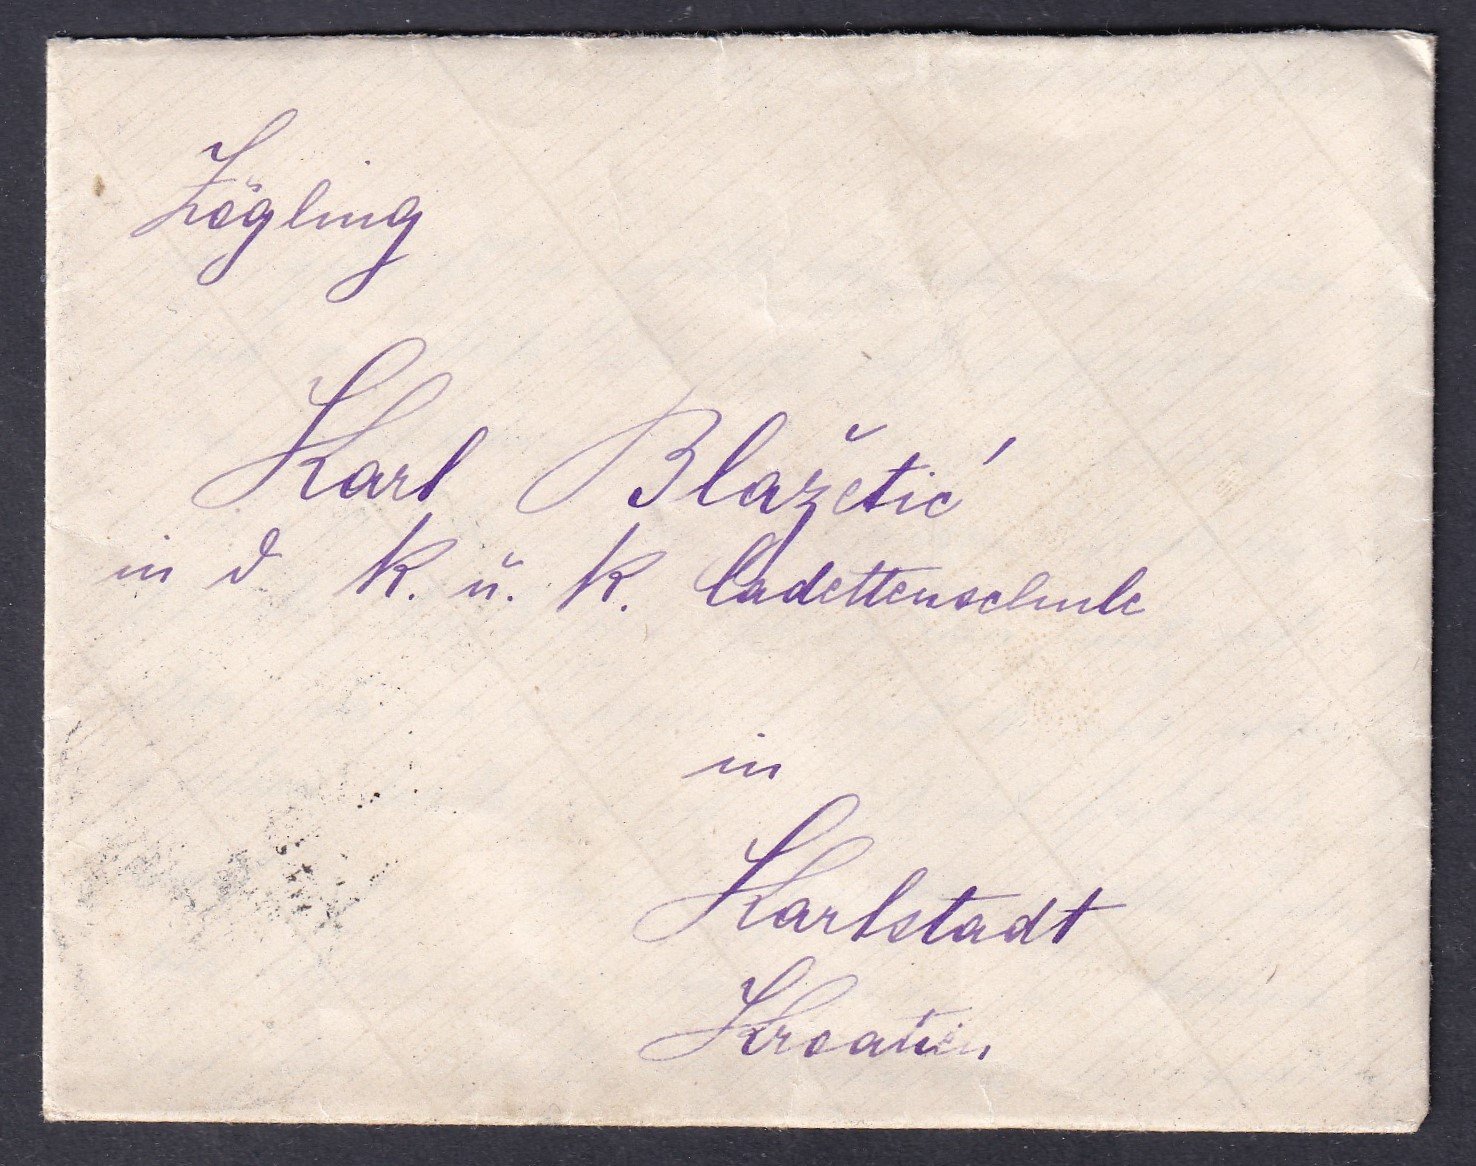 Zögling
Karl Blažetić
in d k. u. k. Cadettenschule
in
Karlstadt
Kroatien